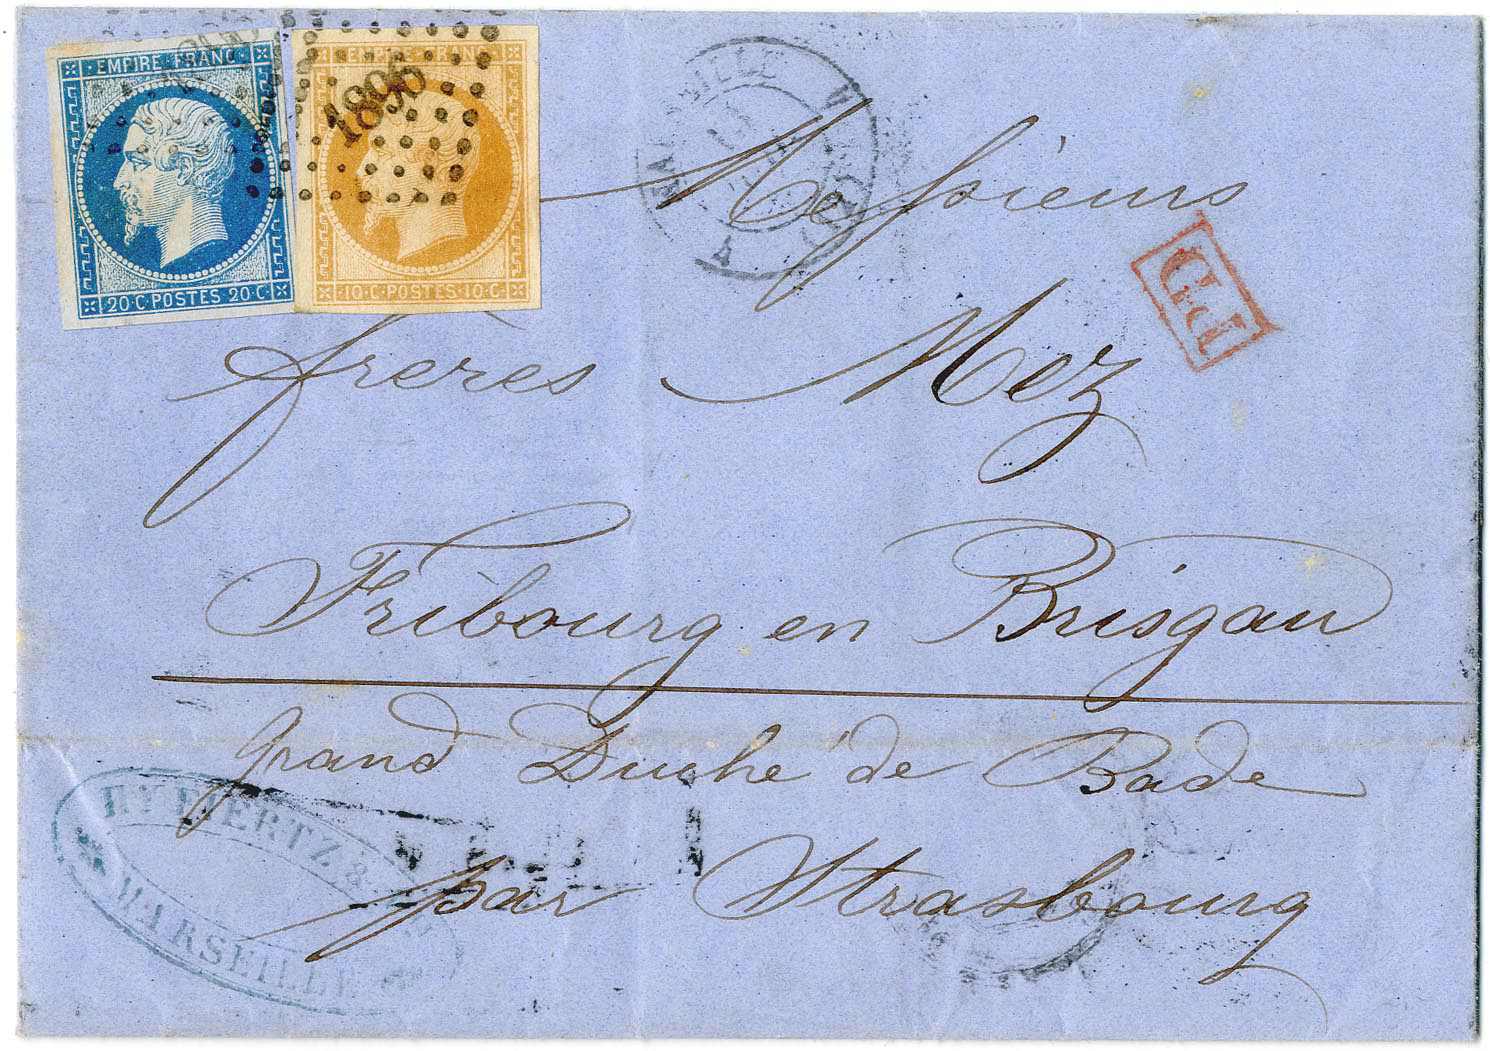 EMPIRE FRANC
20·C·POSTES 20·C·
EMPIRE·FRANC·
·10·C·POSTES·10·C·
1896
MARSEILLE
P.P
Messieurs
frères Mez
Fribourg en Brisgau
grand Duché de Bade
par Strasbourg
HY HERTZ &
MARSEILLE